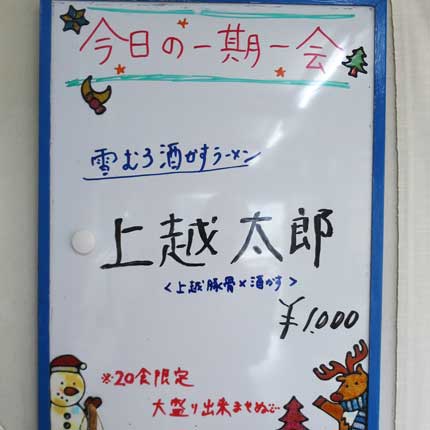 今日の一期一会
雪むろ酒かすラーメン
上越太郎
<上越豚骨×酒かす>
¥1,000
※20食限定
大盛り出来ませぬ…